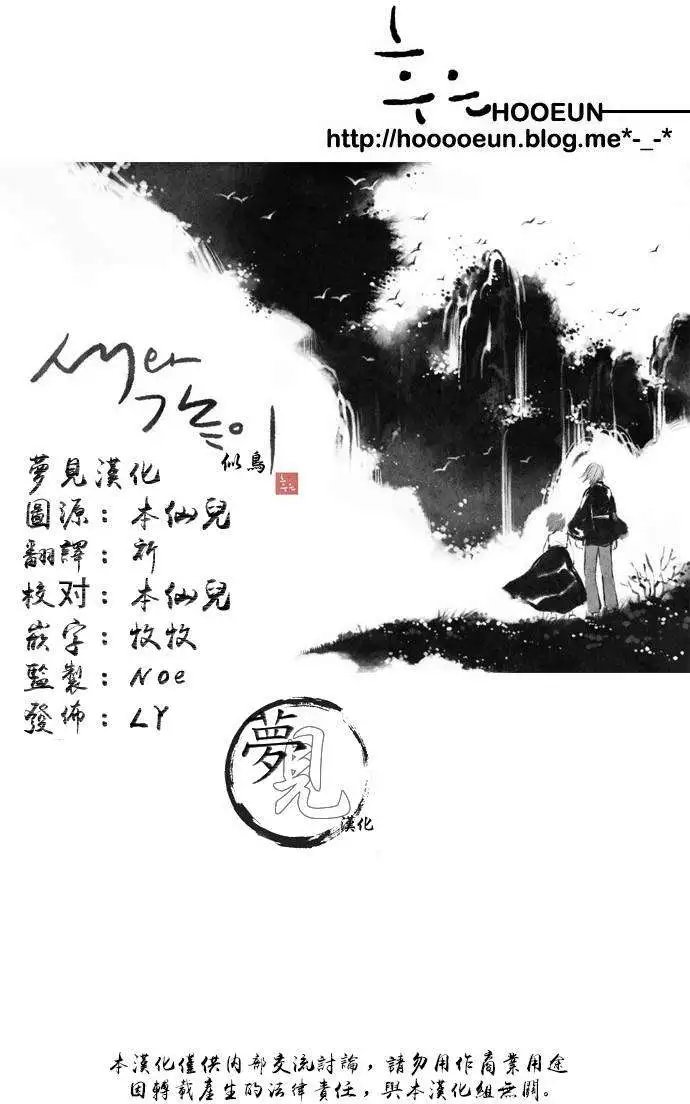 후은
HOOEUN
http://hooooeun.blog.me*-_-*
새와
같이
似鳥
후은
夢見漢化
圖源：本仙兒
翻譯：新
校对：本仙兒
嵌字：牧牧
監製：Noe
發佈：LY
夢見
漢化
本漢化僅供内部交流討論，請勿用作商業用途
因轉載產生的法律責任，與本漢化組無關。